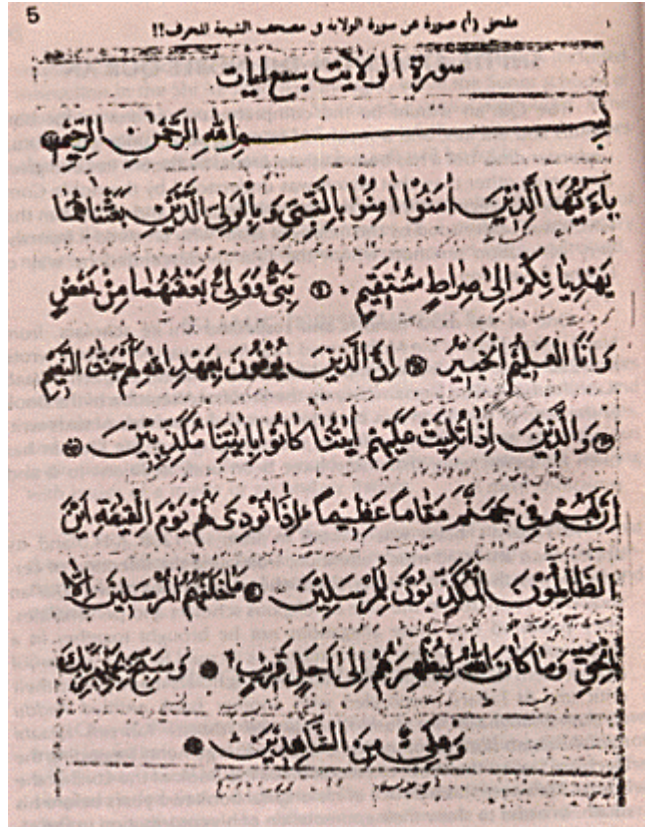 5
ملحق (أ) صورة عن سورة الولاية في مصحف الشيعة المحرف!!
سورة الولايت سبع ايات
بسم الله الرحمن الرحيم
يٰاَيُّهَا الَّذِينَ اٰمَنُوْا اٰمِنُوْا بِالنَّبِيّ وَبِالْوَلِيّ الَّذَيْنَ بَعَثْنَاهُمَا
يَهْدِيَانِكُمْ اِلىٰ صِرَاطٍ مُسْتَقِيمٍ ۝ نَبِيٌّ وَوَلِيٌّ بَعْضُهُمَا مِنْ بَعْضٍ
وَاَنَا الْعَلِيْمُ الْخَبِيْرُ ۝ اِنَّ الَّذِيْنَ يُوْفُوْنَ بِعَهْدِ اللهِ لَهُمْ جَنّٰتُ النَّعِيْمِ
۝ وَالَّذِيْنَ اِذَا تُلِيَتْ عَلَيْهِمْ اٰيٰتُنَا كَانُوْا بِاٰيٰتِنَا مُكَذِّبِيْنَ ۝
اِنَّ لَهُمْ فِيْ جَهَنَّمَ مَقَامًا عَظِيْمًا اِذَا نُوْدِىَ لَهُمْ يَوْمَ الْقِيٰمَةِ اَيْنَ
الظَّالِمُوْنَ الْمُكَذِّبُوْنَ لِلْمُرْسَلِيْنَ ۝ مَا خَلَفَهُمُ الْمُرْسَلِيْنَ اِلَّا
بِالْحَقِّ وَمَا كَانَ اللهُ لِيُظْهِرَهُمْ اِلىٰ اَجَلٍ قَرِيْبٍ ۝ وَسَبِّحْ بِحَمْدِ رَبِّكَ
وَعَلِيٌّ مِنَ الشَّاهِدِيْنَ ۝